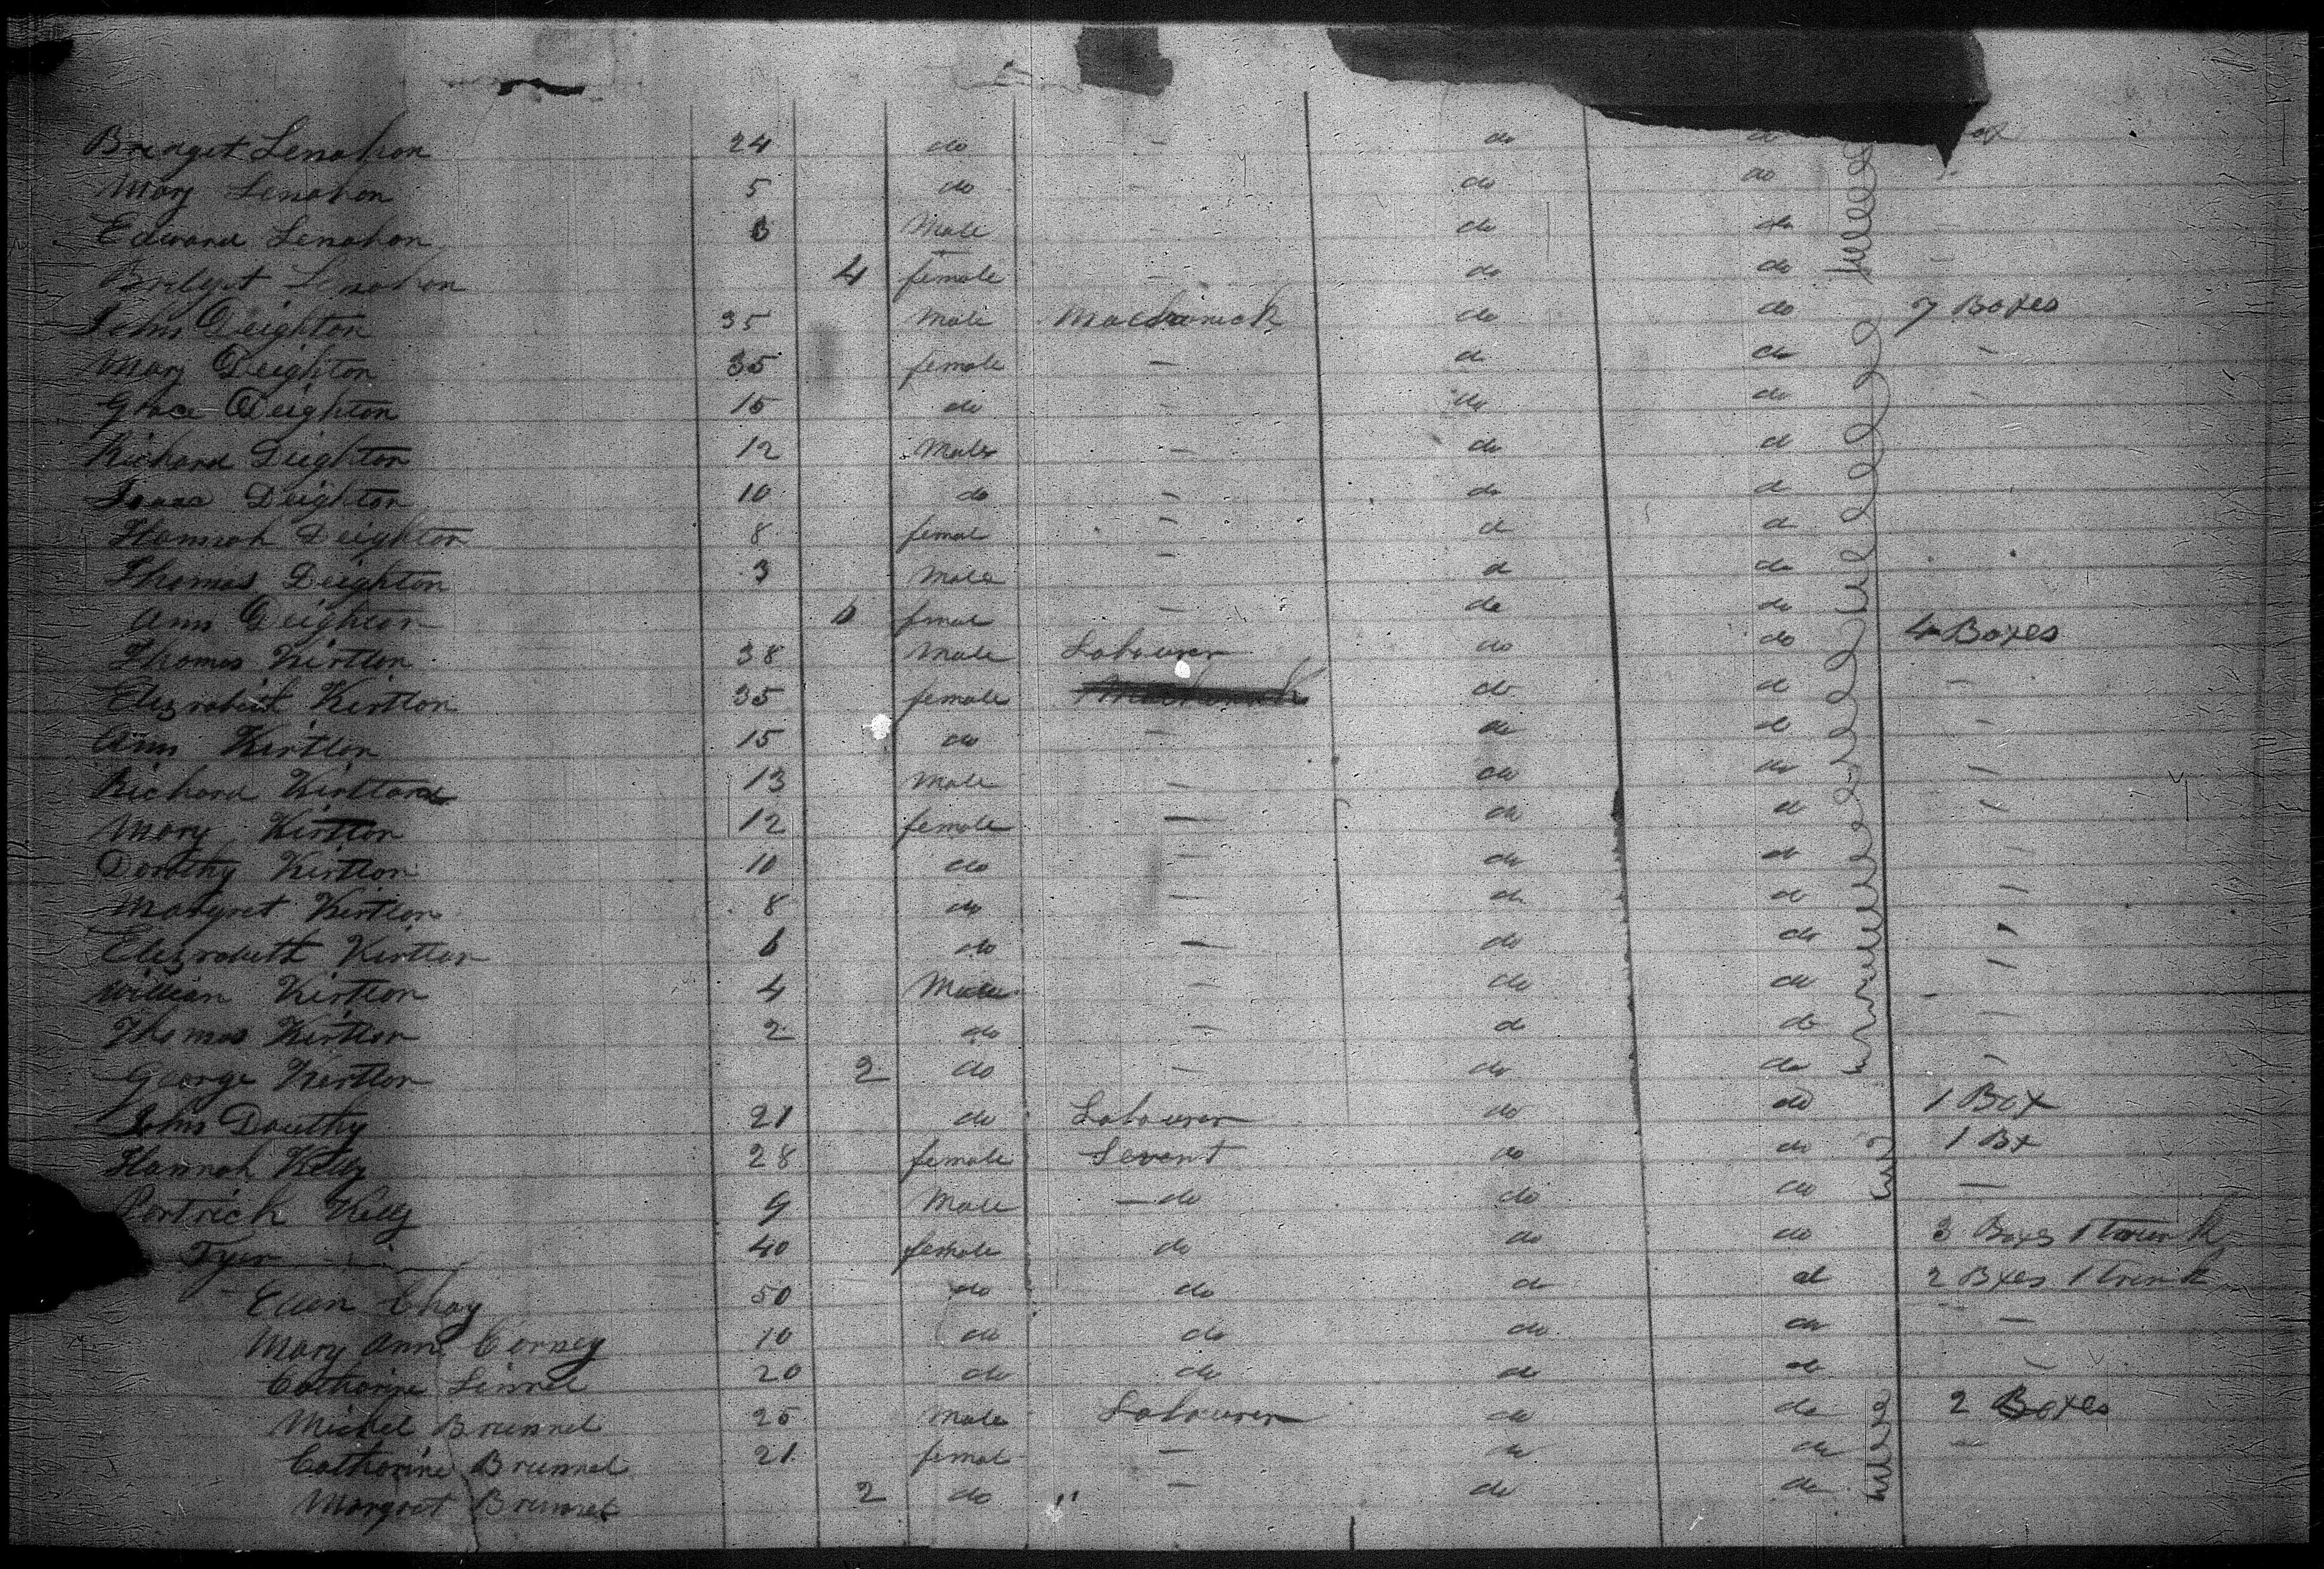 Bridget Lenahon 24 do - do do
Mary Lenahon 5 do - do do
Edward Lenahon 3 Male - do do
Bridget Lenahon 4 female - do do -
John Deighton 35 Male Machanick do do 7 Boxes
Mary Deighton 35 female - do do -
Grace Deighton 15 do - do do -
Richard Deighton 12 Male - do do
Isaac Deighton 10 do - do do
Hannah Deighton 8 femal - do do
Thomas Deighton 3 Male - do do
Ann Deighton 6 femal - do do
Thomas Kirtlon 38 Male Labourer do do 4 Boxes
Elezrabeth Kirtlon 35 female do do -
Ann Kirtlon 15 do - do do -
Richard Kirtlon 13 Male - do do -
Mary Kirtlon 12 female - do do -
Dorothy Kirtlon 10 do - do do -
Margret Kirtlon 8 do - do do -
Elezrabeth Kirtlon 6 do - do do -
William Kirtlon 4 Male - do do -
Thomas Kirtlon 2 do - do do -
George Kirtlon 2 do - do do -
John Douthy 21 do Labourer do do 1 Box
Hannah Kelly 28 female Sevent do do 1 Bx
Portrick Kelly 9 Male - do do do -
Tyer 40 female do do do 3 Boxes 1 trunk
Ellen Chay 50 do do do do 2 Bxes 1 trunk
Mary Ann Corney 10 do do do do -
Catharine Linnel 20 do do do do -
Michel Brunnel 25 Male Labourer do do 2 Boxes
Catharine Brunnel 21 femal - do do -
Margret Brunnel 2 do " - do do